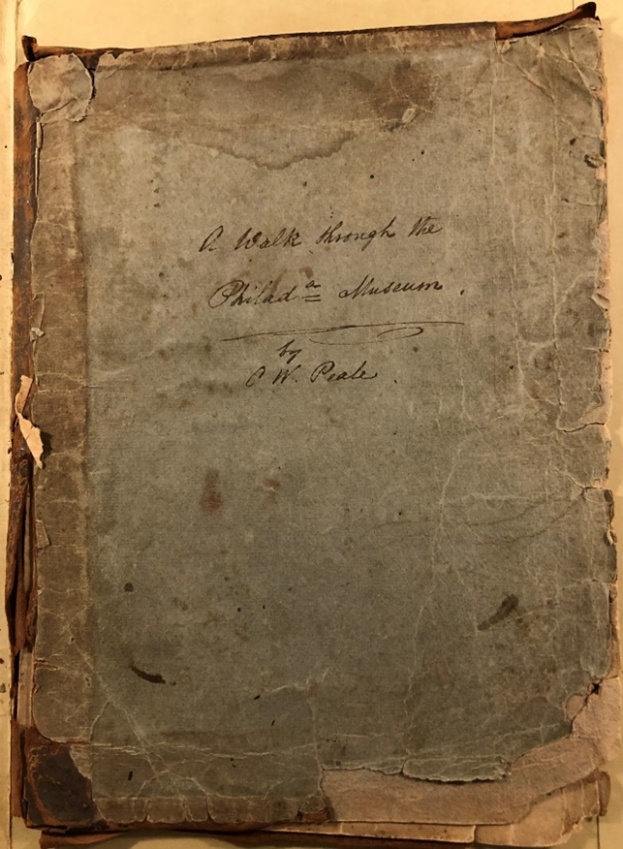 A Walk through the
Philadᵃ Museum.
by
C W. Peale.